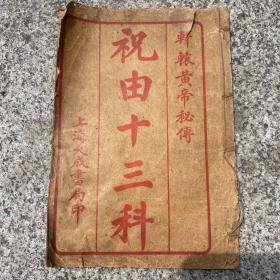 軒轅黃帝秘傳
祝由十三科
上海大成書局印